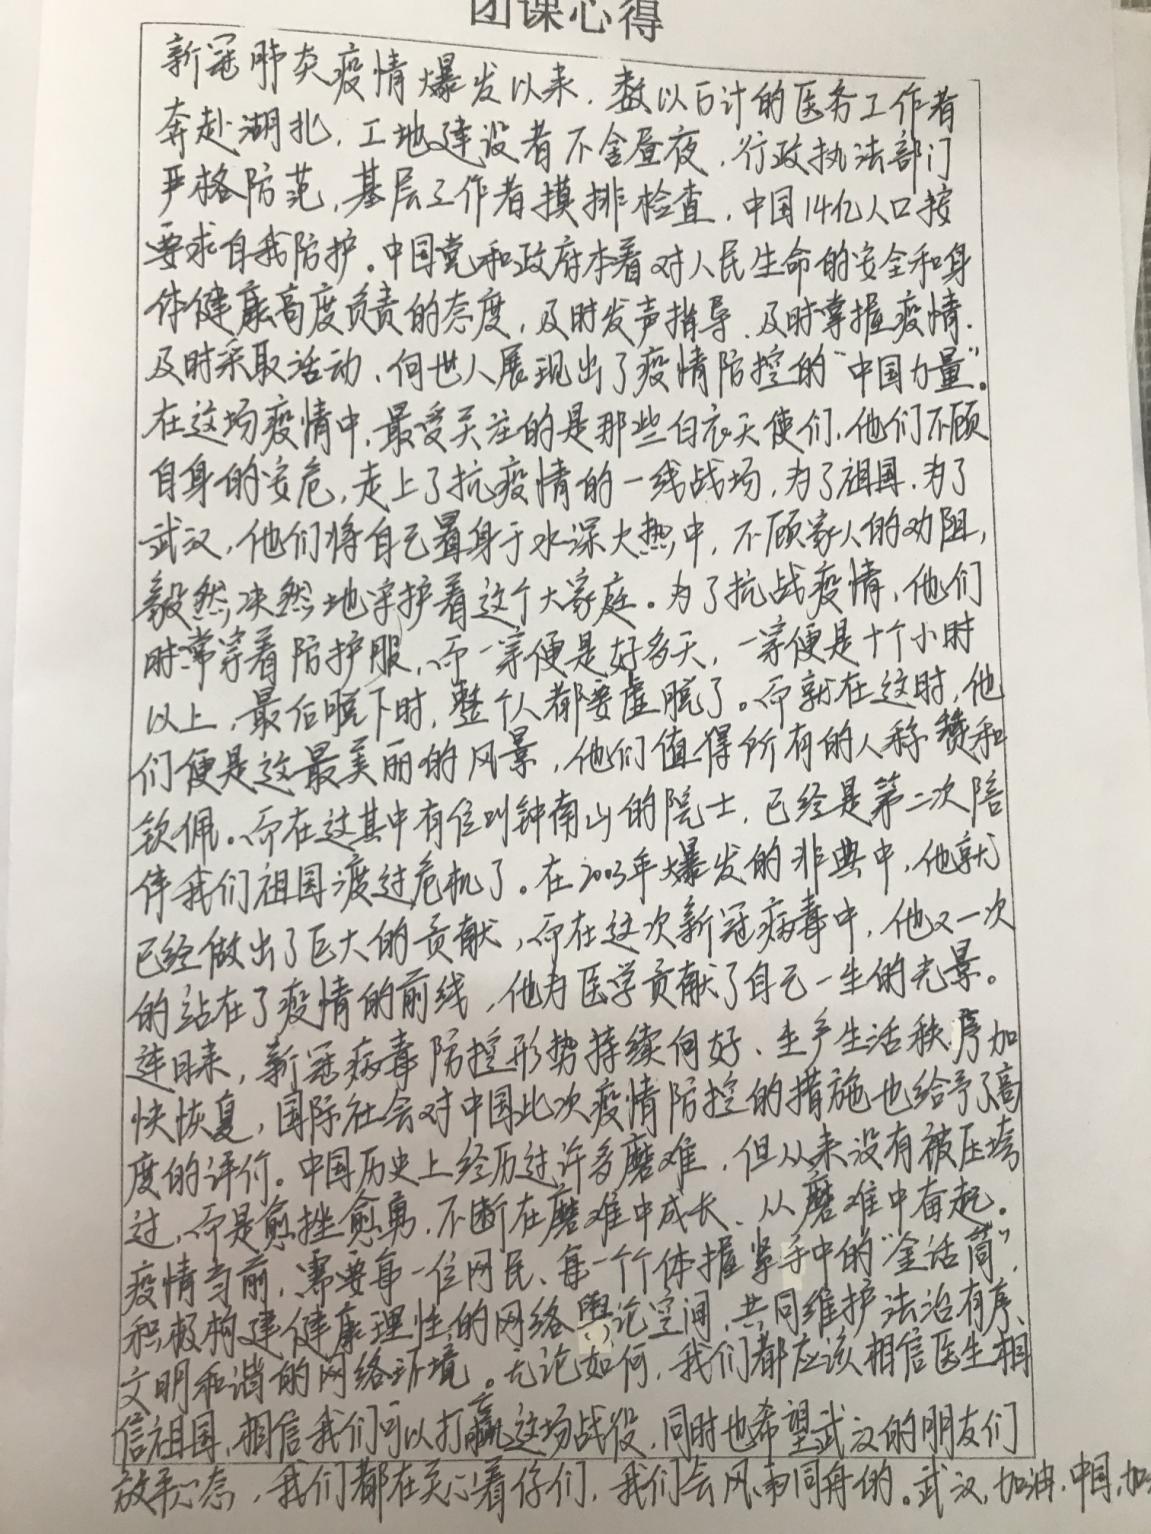 团课心得
新冠肺炎疫情爆发以来，数以百计的医务工作者
奔赴湖北，工地建设者不舍昼夜，行政执法部门
严格防范，基层工作者摸排检查，中国14亿人口按
要求自我防护。中国党和政府本着对人民生命的安全和身
体健康高度负责的态度，及时发声指导、及时掌握疫情、
及时采取活动，向世人展现出了疫情防控的“中国力量”。
在这场疫情中，最受关注的是那些白衣天使们，他们不顾
自身的安危，走上了抗疫情的一线战场，为了祖国，为了
武汉，他们将自己置身于水深大热中，不顾家人的劝阻，
毅然决然地守护着这个大家庭。为了抗战疫情，他们
时常穿着防护服，而一穿便是好多天，一穿便是十个小时
以上，最后脱下时，整个人都要虚脱了。而就在这时，他
们便是这最美丽的风景，他们值得所有的人称赞和
钦佩。而在这其中有位叫钟南山的院士，已经是第二次陪
伴我们祖国渡过危机了。在2003年爆发的非典中，他就
已经做出了巨大的贡献，而在这次新冠病毒中，他又一次
的站在了疫情的前线，他为医学贡献了自己一生的光景。
连日来，新冠病毒防控形势持续向好、生产生活秩序加
快恢复，国际社会对中国此次疫情防控的措施也给予了高
度的评价。中国历史上经历过许多磨难，但从来没有被压垮
过，而是愈挫愈勇，不断在磨难中成长、从磨难中奋起。
疫情当前，需要每一位网民、每一个个体握紧手中的“金话筒”，
积极构建健康理性的网络舆论空间，共同维护法治有序、
文明和谐的网络环境。无论如何，我们都应该相信医生相
信祖国，相信我们可以打赢这场战役，同时也希望武汉的朋友们
放平心态，我们都在关心着你们，我们会风雨同舟的。武汉，加油，中国，加